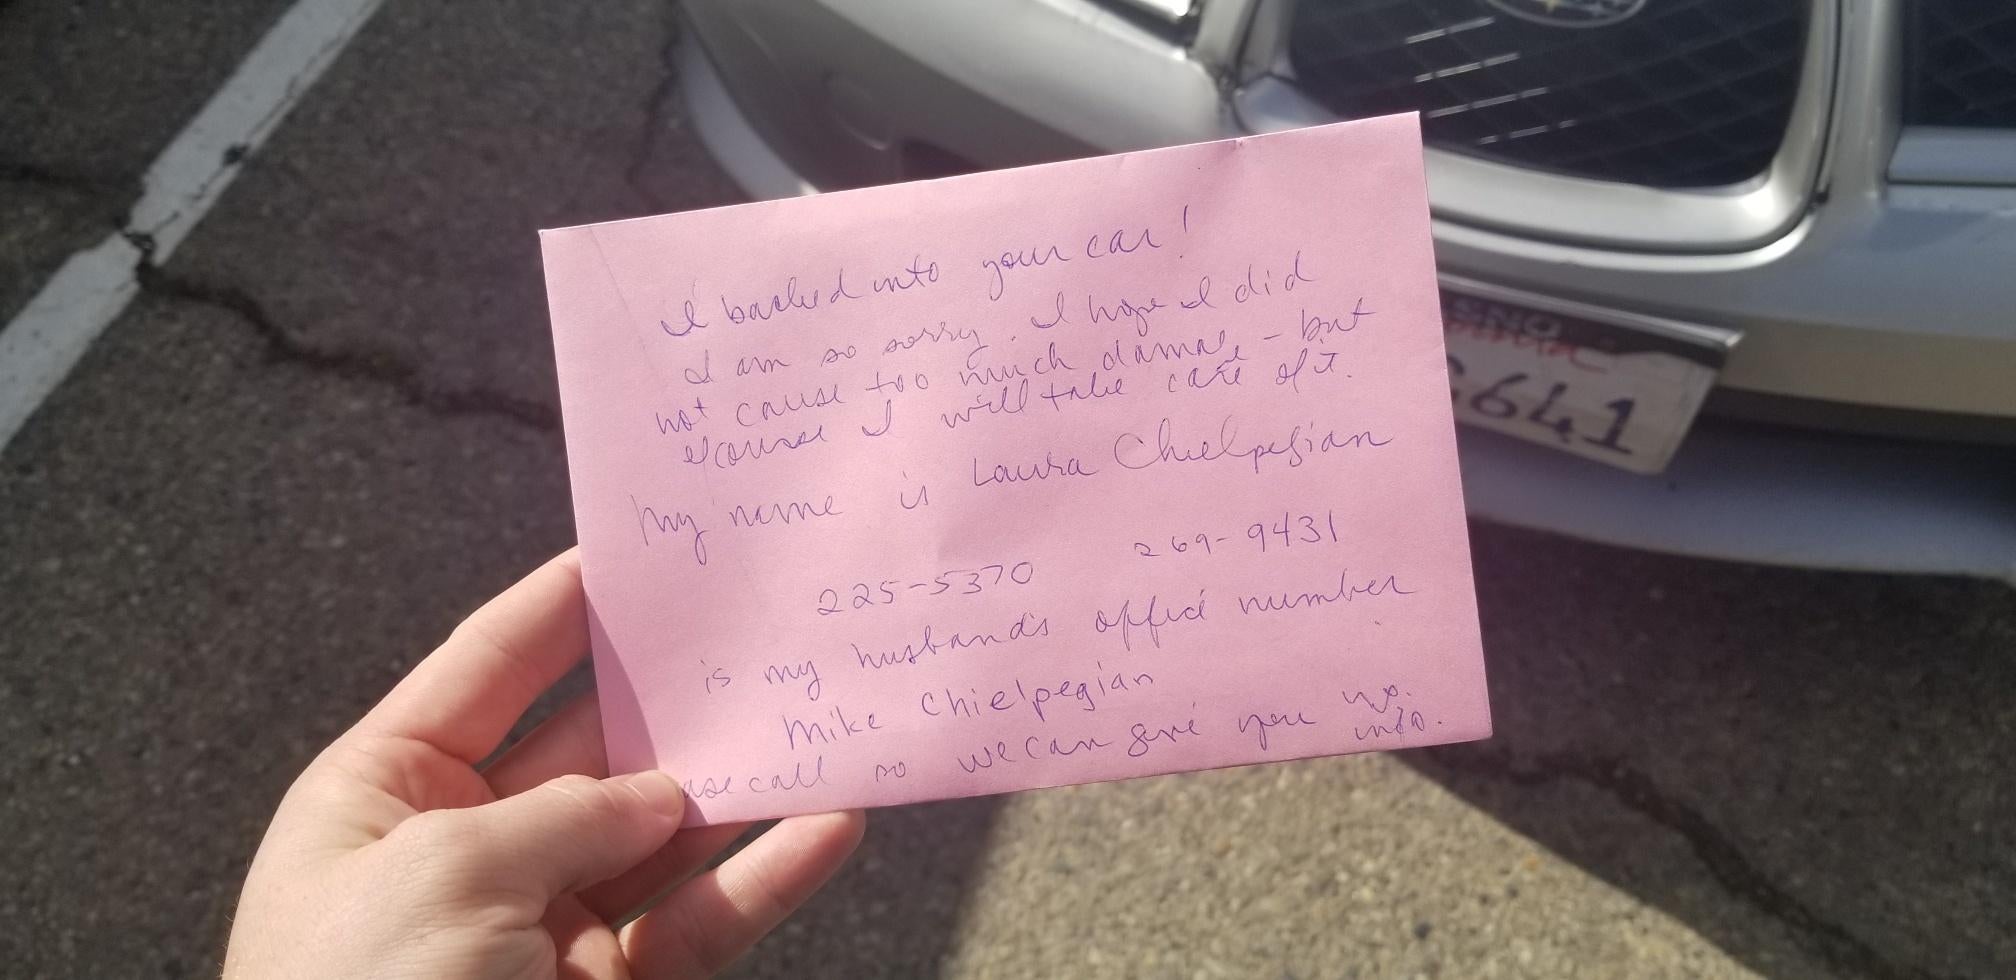 I backed into your car!
I am so sorry. I hope I did
not cause too much damage - but
of course I will take care of it.
My name is Laura Chielpegian
225-5370 269-9431
is my husband's office number
Mike Chielpegian
ase call so we can give you ins.
info.
SNO
641